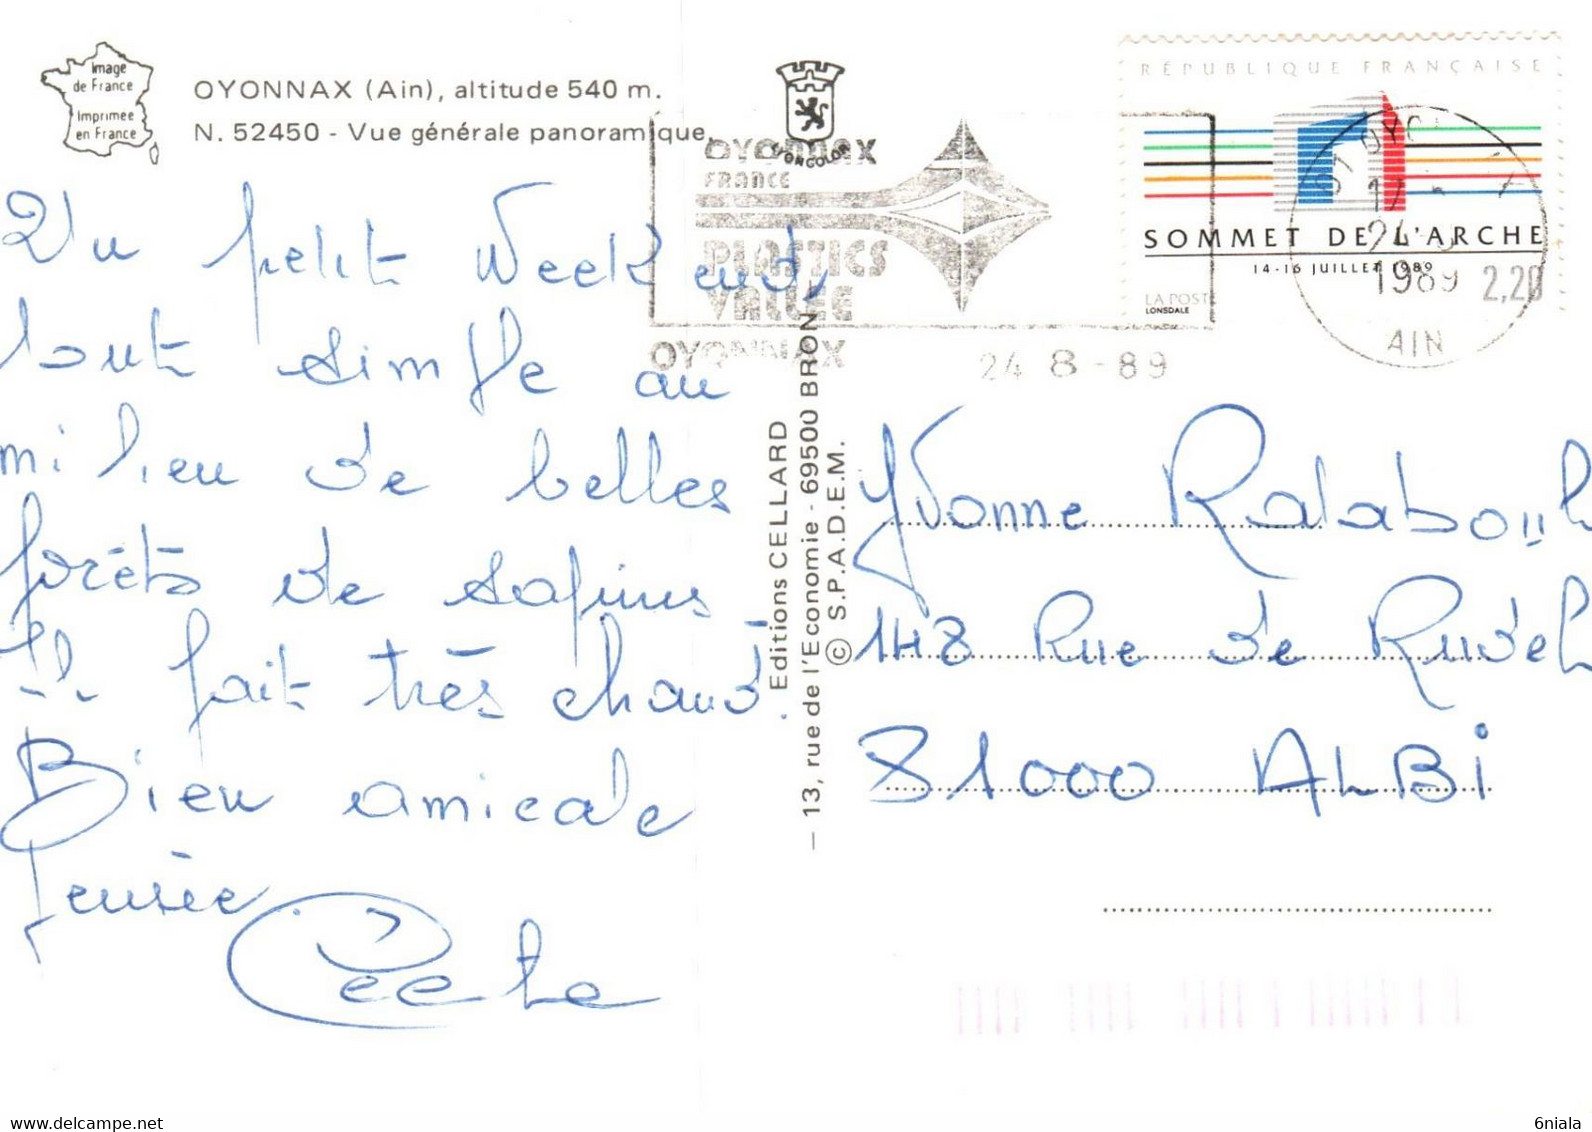 Image
de France
Imprimée
en France
OYONNAX (Ain), altitude 540 m.
N. 52450 - Vue générale panoramique.
LYONCOLOR
OYONNAX
FRANCE
PLASTICS
VALLEE
OYONNAX
24 8 - 89
RÉPUBLIQUE FRANÇAISE
SOMMET DE L'ARCHE
14-16 JUILLET 1989
LA POSTE
LONSDALE
2,20
01 OYONNAX
24 8
1989
AIN
Un petit Week end,
tout simple au
milieu de belles
forêts de sapins
Il fait très chaud.
Bien amicale
pensée.
Editions CELLARD
— 13, rue de l'Economie - 69500 BRON
© S.P.A.D.E.M.
Yvonne
148 Rue de Rudel
81000 ALBi
delcampe.net
6niala